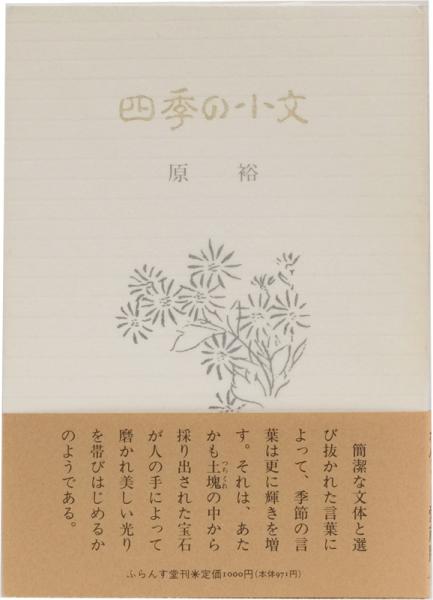 四季の小文
原 裕
簡潔な文体と選
び抜かれた言葉に
よって、季節の言
葉は更に輝きを増
す。それは、あた
かも土塊の中から
つちくれ
採り出された宝石
が人の手によって
磨かれ美しい光り
を帯びはじめるか
のようである。
ふらんす堂刊✳定価1000円(本体971円)